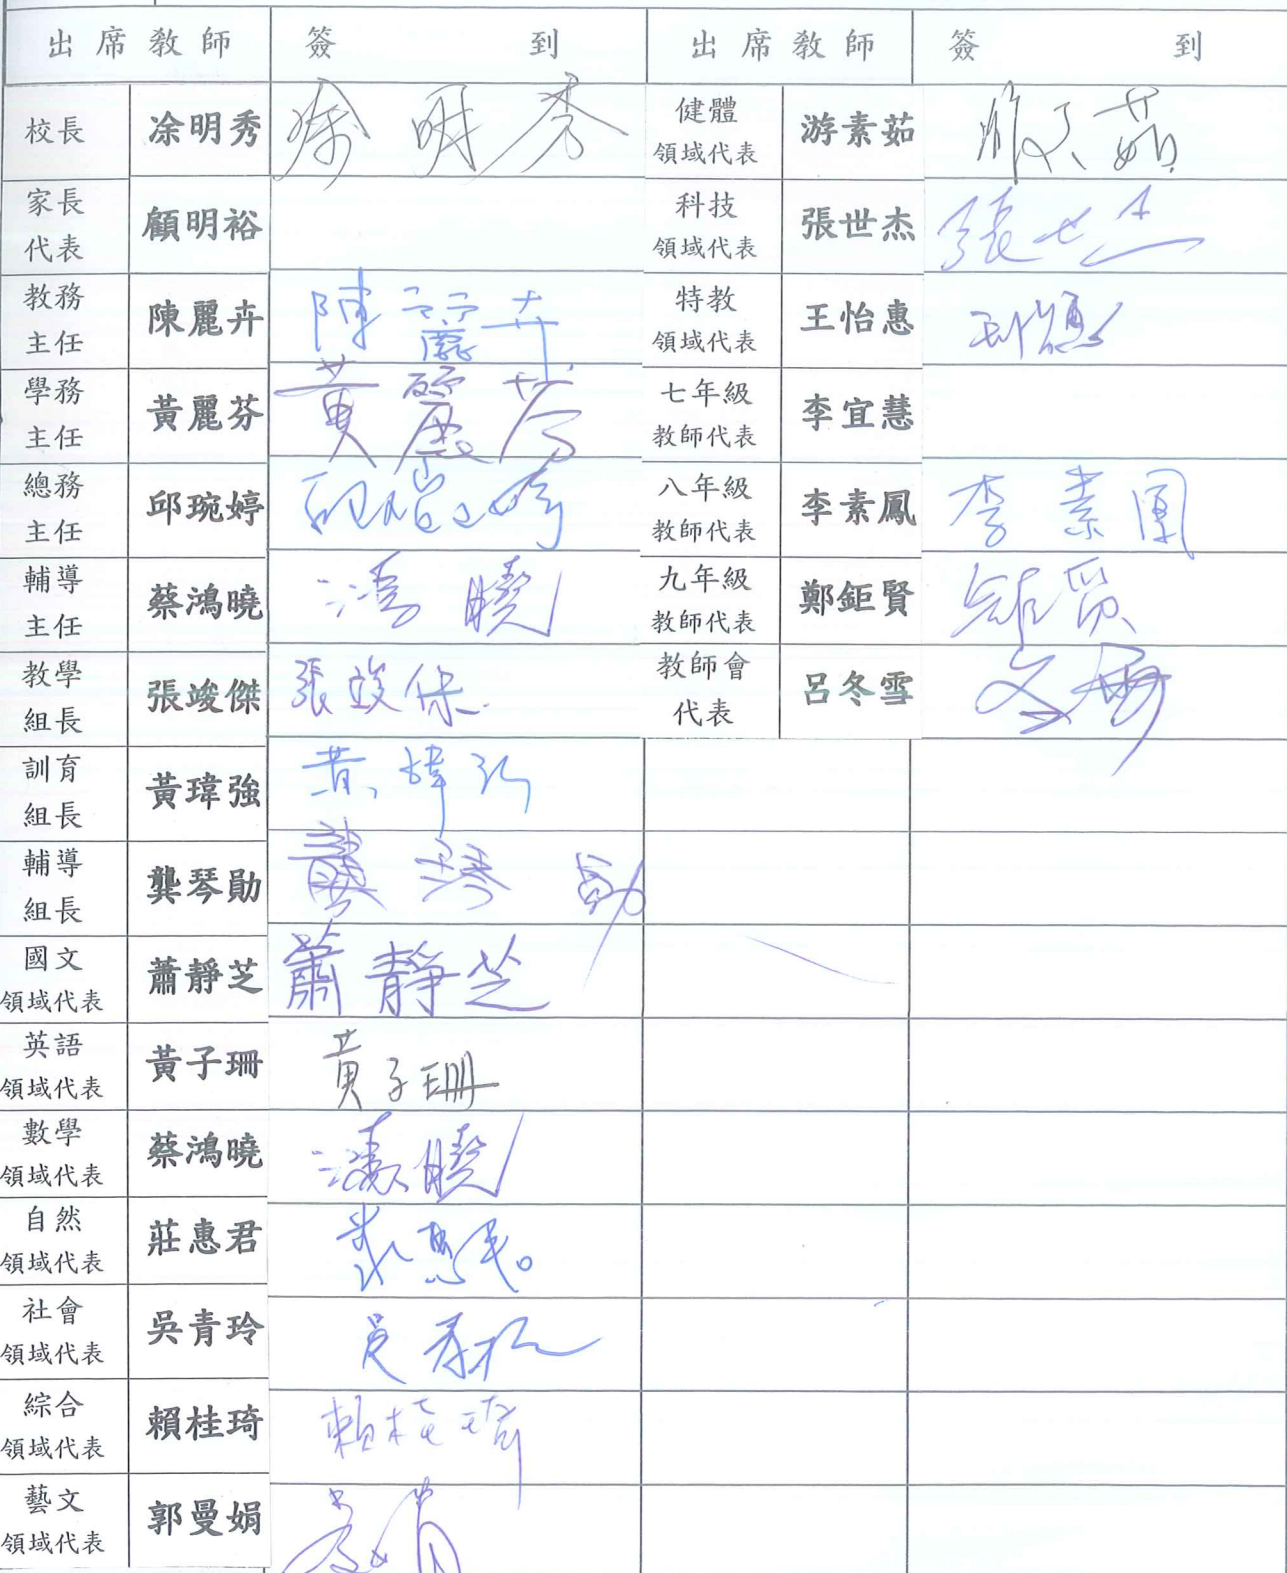 出席教師 簽到 出席教師 簽到
校長 凃明秀 凃明秀 健體領域代表 游素茹
家長代表 顧明裕 科技領域代表 張世杰 張世杰
教務主任 陳麗卉 陳麗卉 特教領域代表 王怡惠
學務主任 黃麗芬 黃麗芬 七年級教師代表 李宜慧
總務主任 邱琬婷 八年級教師代表 李素鳳 李素鳳
輔導主任 蔡鴻曉 鴻曉 九年級教師代表 鄭鉅賢
教學組長 張竣傑 張竣傑 教師會代表 呂冬雪
訓育組長 黃瑋強
輔導組長 龔琴勛 龔琴勛
國文領域代表 蕭靜芝 蕭靜芝
英語領域代表 黃子珊 黃子珊
數學領域代表 蔡鴻曉 鴻曉
自然領域代表 莊惠君
社會領域代表 吳青玲
綜合領域代表 賴桂琦 賴桂琦
藝文領域代表 郭曼娟